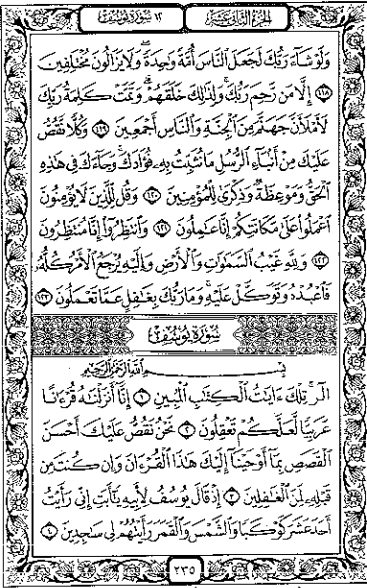 ١٢ سورة يوسف الجزء الثاني عشر
وَلَوْ شَآءَ رَبُّكَ لَجَعَلَ ٱلنَّاسَ أُمَّةً وَٰحِدَةً ۖ وَلَا يَزَالُونَ مُخْتَلِفِينَ
﴿١١٨﴾ إِلَّا مَن رَّحِمَ رَبُّكَ ۚ وَلِذَٰلِكَ خَلَقَهُمْ ۗ وَتَمَّتْ كَلِمَةُ رَبِّكَ
لَأَمْلَأَنَّ جَهَنَّمَ مِنَ ٱلْجِنَّةِ وَٱلنَّاسِ أَجْمَعِينَ ﴿١١٩﴾ وَكُلًّا نَّقُصُّ
عَلَيْكَ مِنْ أَنۢبَآءِ ٱلرُّسُلِ مَا نُثَبِّتُ بِهِۦ فُؤَادَكَ ۚ وَجَآءَكَ فِى هَٰذِهِ
ٱلْحَقُّ وَمَوْعِظَةٌ وَذِكْرَىٰ لِلْمُؤْمِنِينَ ﴿١٢٠﴾ وَقُل لِّلَّذِينَ لَا يُؤْمِنُونَ
ٱعْمَلُوا۟ عَلَىٰ مَكَانَتِكُمْ إِنَّا عَٰمِلُونَ ﴿١٢١﴾ وَٱنتَظِرُوٓا۟ إِنَّا مُنتَظِرُونَ
﴿١٢٢﴾ وَلِلَّهِ غَيْبُ ٱلسَّمَٰوَٰتِ وَٱلْأَرْضِ وَإِلَيْهِ يُرْجَعُ ٱلْأَمْرُ كُلُّهُۥ
فَٱعْبُدْهُ وَتَوَكَّلْ عَلَيْهِ ۚ وَمَا رَبُّكَ بِغَٰفِلٍ عَمَّا تَعْمَلُونَ ﴿١٢٣﴾
سُورَةُ يُوسُفَ
بِسْمِ ٱللَّهِ ٱلرَّحْمَٰنِ ٱلرَّحِيمِ
الٓر ۚ تِلْكَ ءَايَٰتُ ٱلْكِتَٰبِ ٱلْمُبِينِ ﴿١﴾ إِنَّآ أَنزَلْنَٰهُ قُرْءَٰنًا
عَرَبِيًّا لَّعَلَّكُمْ تَعْقِلُونَ ﴿٢﴾ نَحْنُ نَقُصُّ عَلَيْكَ أَحْسَنَ
ٱلْقَصَصِ بِمَآ أَوْحَيْنَآ إِلَيْكَ هَٰذَا ٱلْقُرْءَانَ وَإِن كُنتَ مِن
قَبْلِهِۦ لَمِنَ ٱلْغَٰفِلِينَ ﴿٣﴾ إِذْ قَالَ يُوسُفُ لِأَبِيهِ يَٰٓأَبَتِ إِنِّى رَأَيْتُ
أَحَدَ عَشَرَ كَوْكَبًا وَٱلشَّمْسَ وَٱلْقَمَرَ رَأَيْتُهُمْ لِى سَٰجِدِينَ ﴿٤﴾
٢٣٥